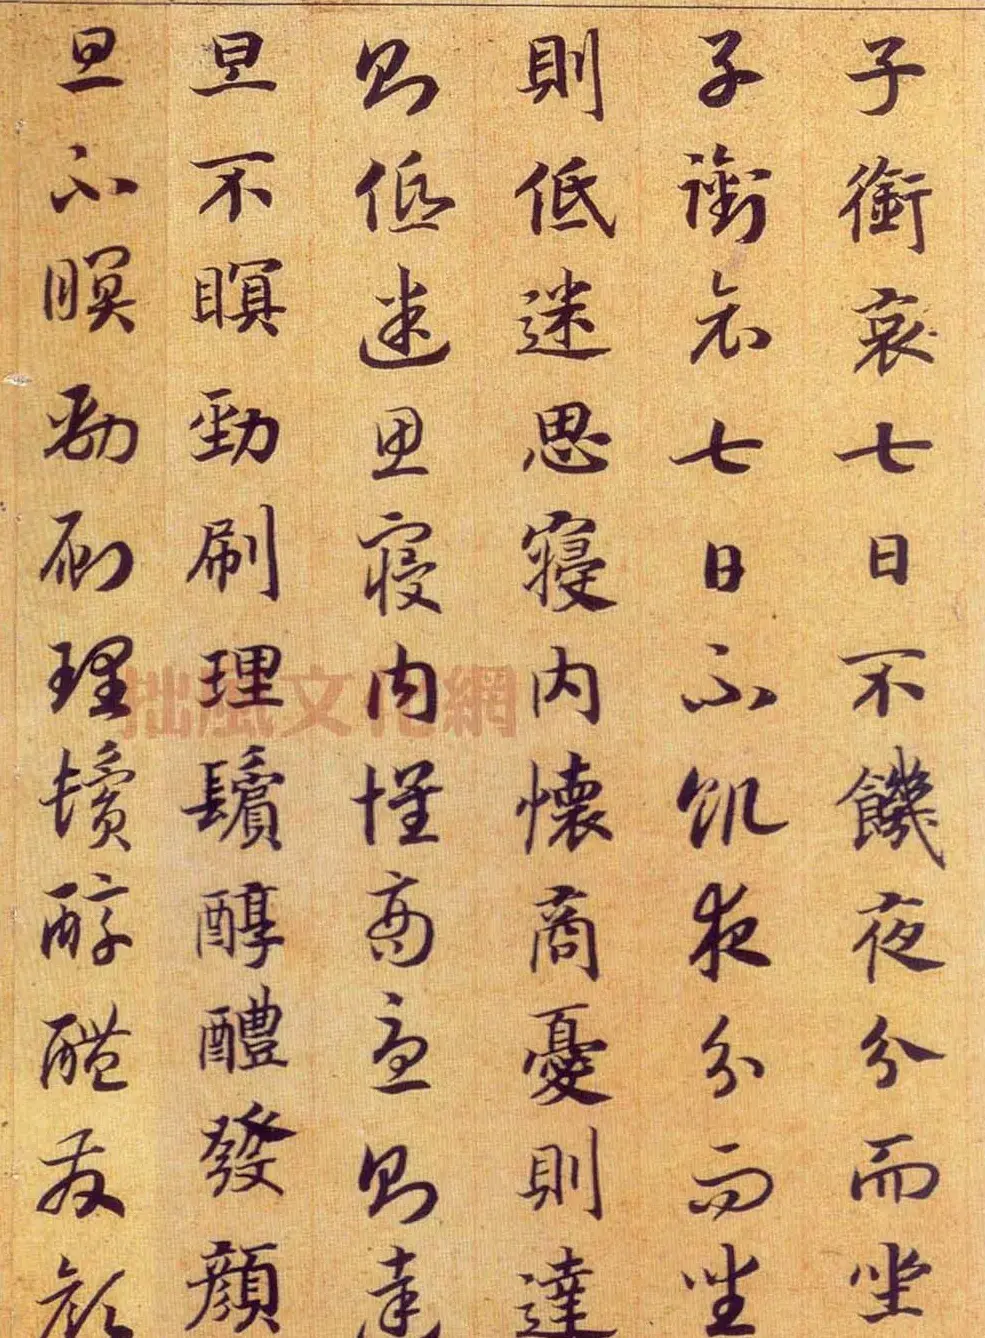 子銜哀七日不饑夜分而坐
子銜哀七日不飢夜分而坐
則低迷思寢内懷商憂則達
則低迷思寢内懷商憂則達
旦不瞑勁刷理鬢醇醴發顔
旦不瞑勁刷理鬢醇醴發顔
拙風文化網